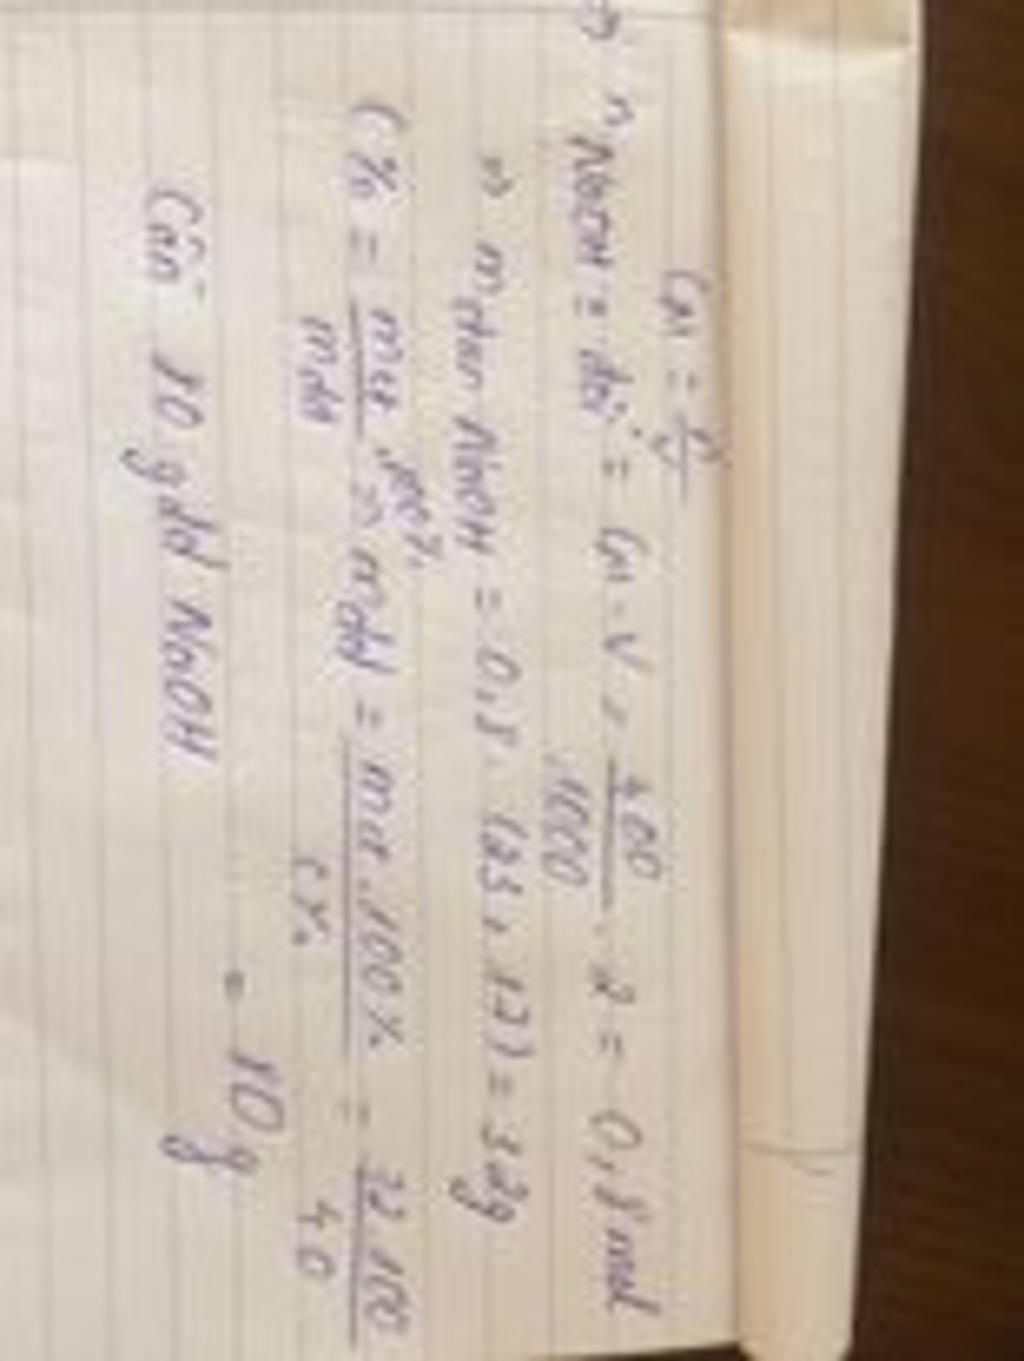 CM = n/V
=> nNaOH = đổi = CM . V = 400/1000 . 2 = 0,8 mol
=> m dan NaOH = 0,8 . (23 + 17) = 32g
C% = mct/mdd . 100% => mdd = mct . 100%/C% = 32.100/40
= 10g
Cần 10 g dd NaOH